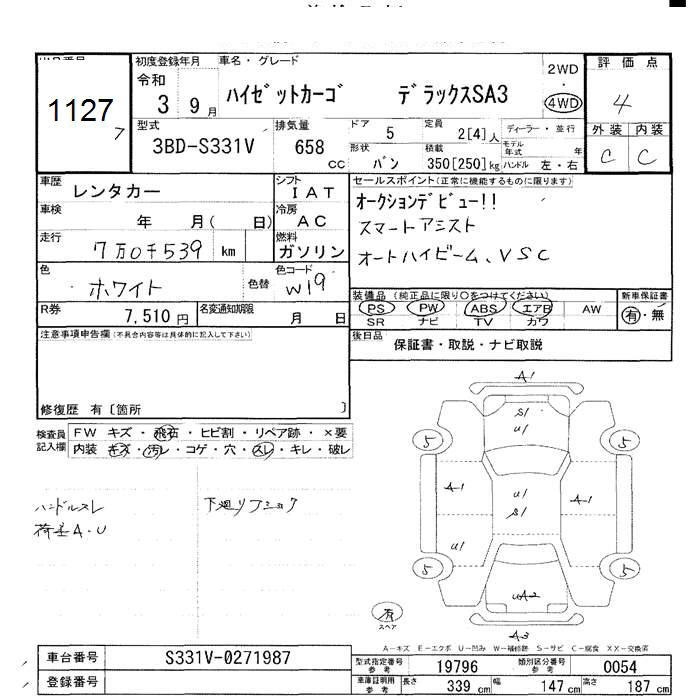 初度登録年月 車名・グレード
1127
令和 3年 9月
ハイゼットカーゴ デラックスSA3
2WD
4WD
評価点
4
外装 内装
C C
型式
3BD-S331V
排気量
658 cc
ドア
5
定員
2[4]人
ディーラー・並行
形状
バン
積載
350[250]kg
モデル年式 年
ハンドル 左・右
車歴
レンタカー
シフト
IAT
車検
年 月( 日)
冷房
AC
走行
7万0千539 km
燃料
ガソリン
色
ホワイト
色替
色コード
W19
R券
7,510円
名変通知期限
月 日
セールスポイント(正常に機能するものに限ります)
オークションデビュー!!
スマートアシスト
オートハイビーム、VSC
装備品(純正品に限り○をつけてください)
PS PW ABS エアB AW
SR ナビ TV カワ
新車保証書
有・無
後日品
保証書・取説・ナビ取説
注意事項申告欄(不具合内容等は具体的に記入して下さい)
修復歴 有〔箇所 〕
検査員記入欄
FW キズ・飛石・ヒビ割・リペア跡・×要
内装 キズ・汚レ・コゲ・穴・スレ・キレ・破レ
ハンドルスレ
荷室A・U
下廻リフショク
A1
S1
U1
5
5
A1
U1
S1
A1
U1
5
5
UA2
A3
有
スペア
A-キズ E-エクボ U-凹み W-補修跡 S-サビ C-腐食 XX-交換済
車台番号
S331V-0271987
登録番号
型式指定番号 参考
19796
類別区分番号 参考
0054
車庫証明用 参考
長さ 339cm 幅 147cm 高さ 187cm